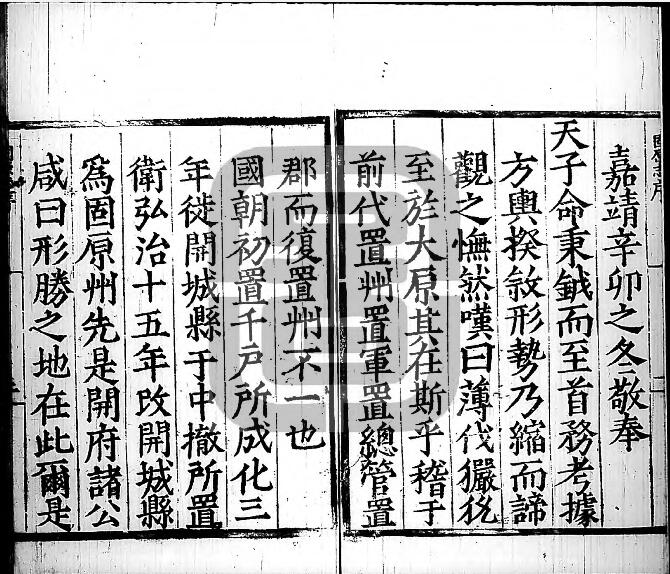 嘉靖辛卯之冬敬奉
天子命秉鉞而至首務考據
方輿揆敘形勢乃縮而諦
觀之憮然嘆曰薄伐玁狁
至於大原其在斯乎稽于
前代置州置軍置總管置
郡而復置州不一也
國朝初置千戶所成化三
年徙開城縣于中撤所置
衛弘治十五年改開城縣
爲固原州先是開府諸公
咸曰形勝之地在此爾是